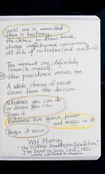 Until one is committed
there is hesitancy,
the chance to
always ineffectiveness concerning
all acts of initiative (and creation)
The moment one definitely
commits oneself
then providence moves too.
A whole stream of events
issues from the decision.
Whatever you can do
or dream you can
begin it
Boldness has genius, power
and magic in it
Begin it now.
WH Murray
"The Scottish Himalayan Expedition"